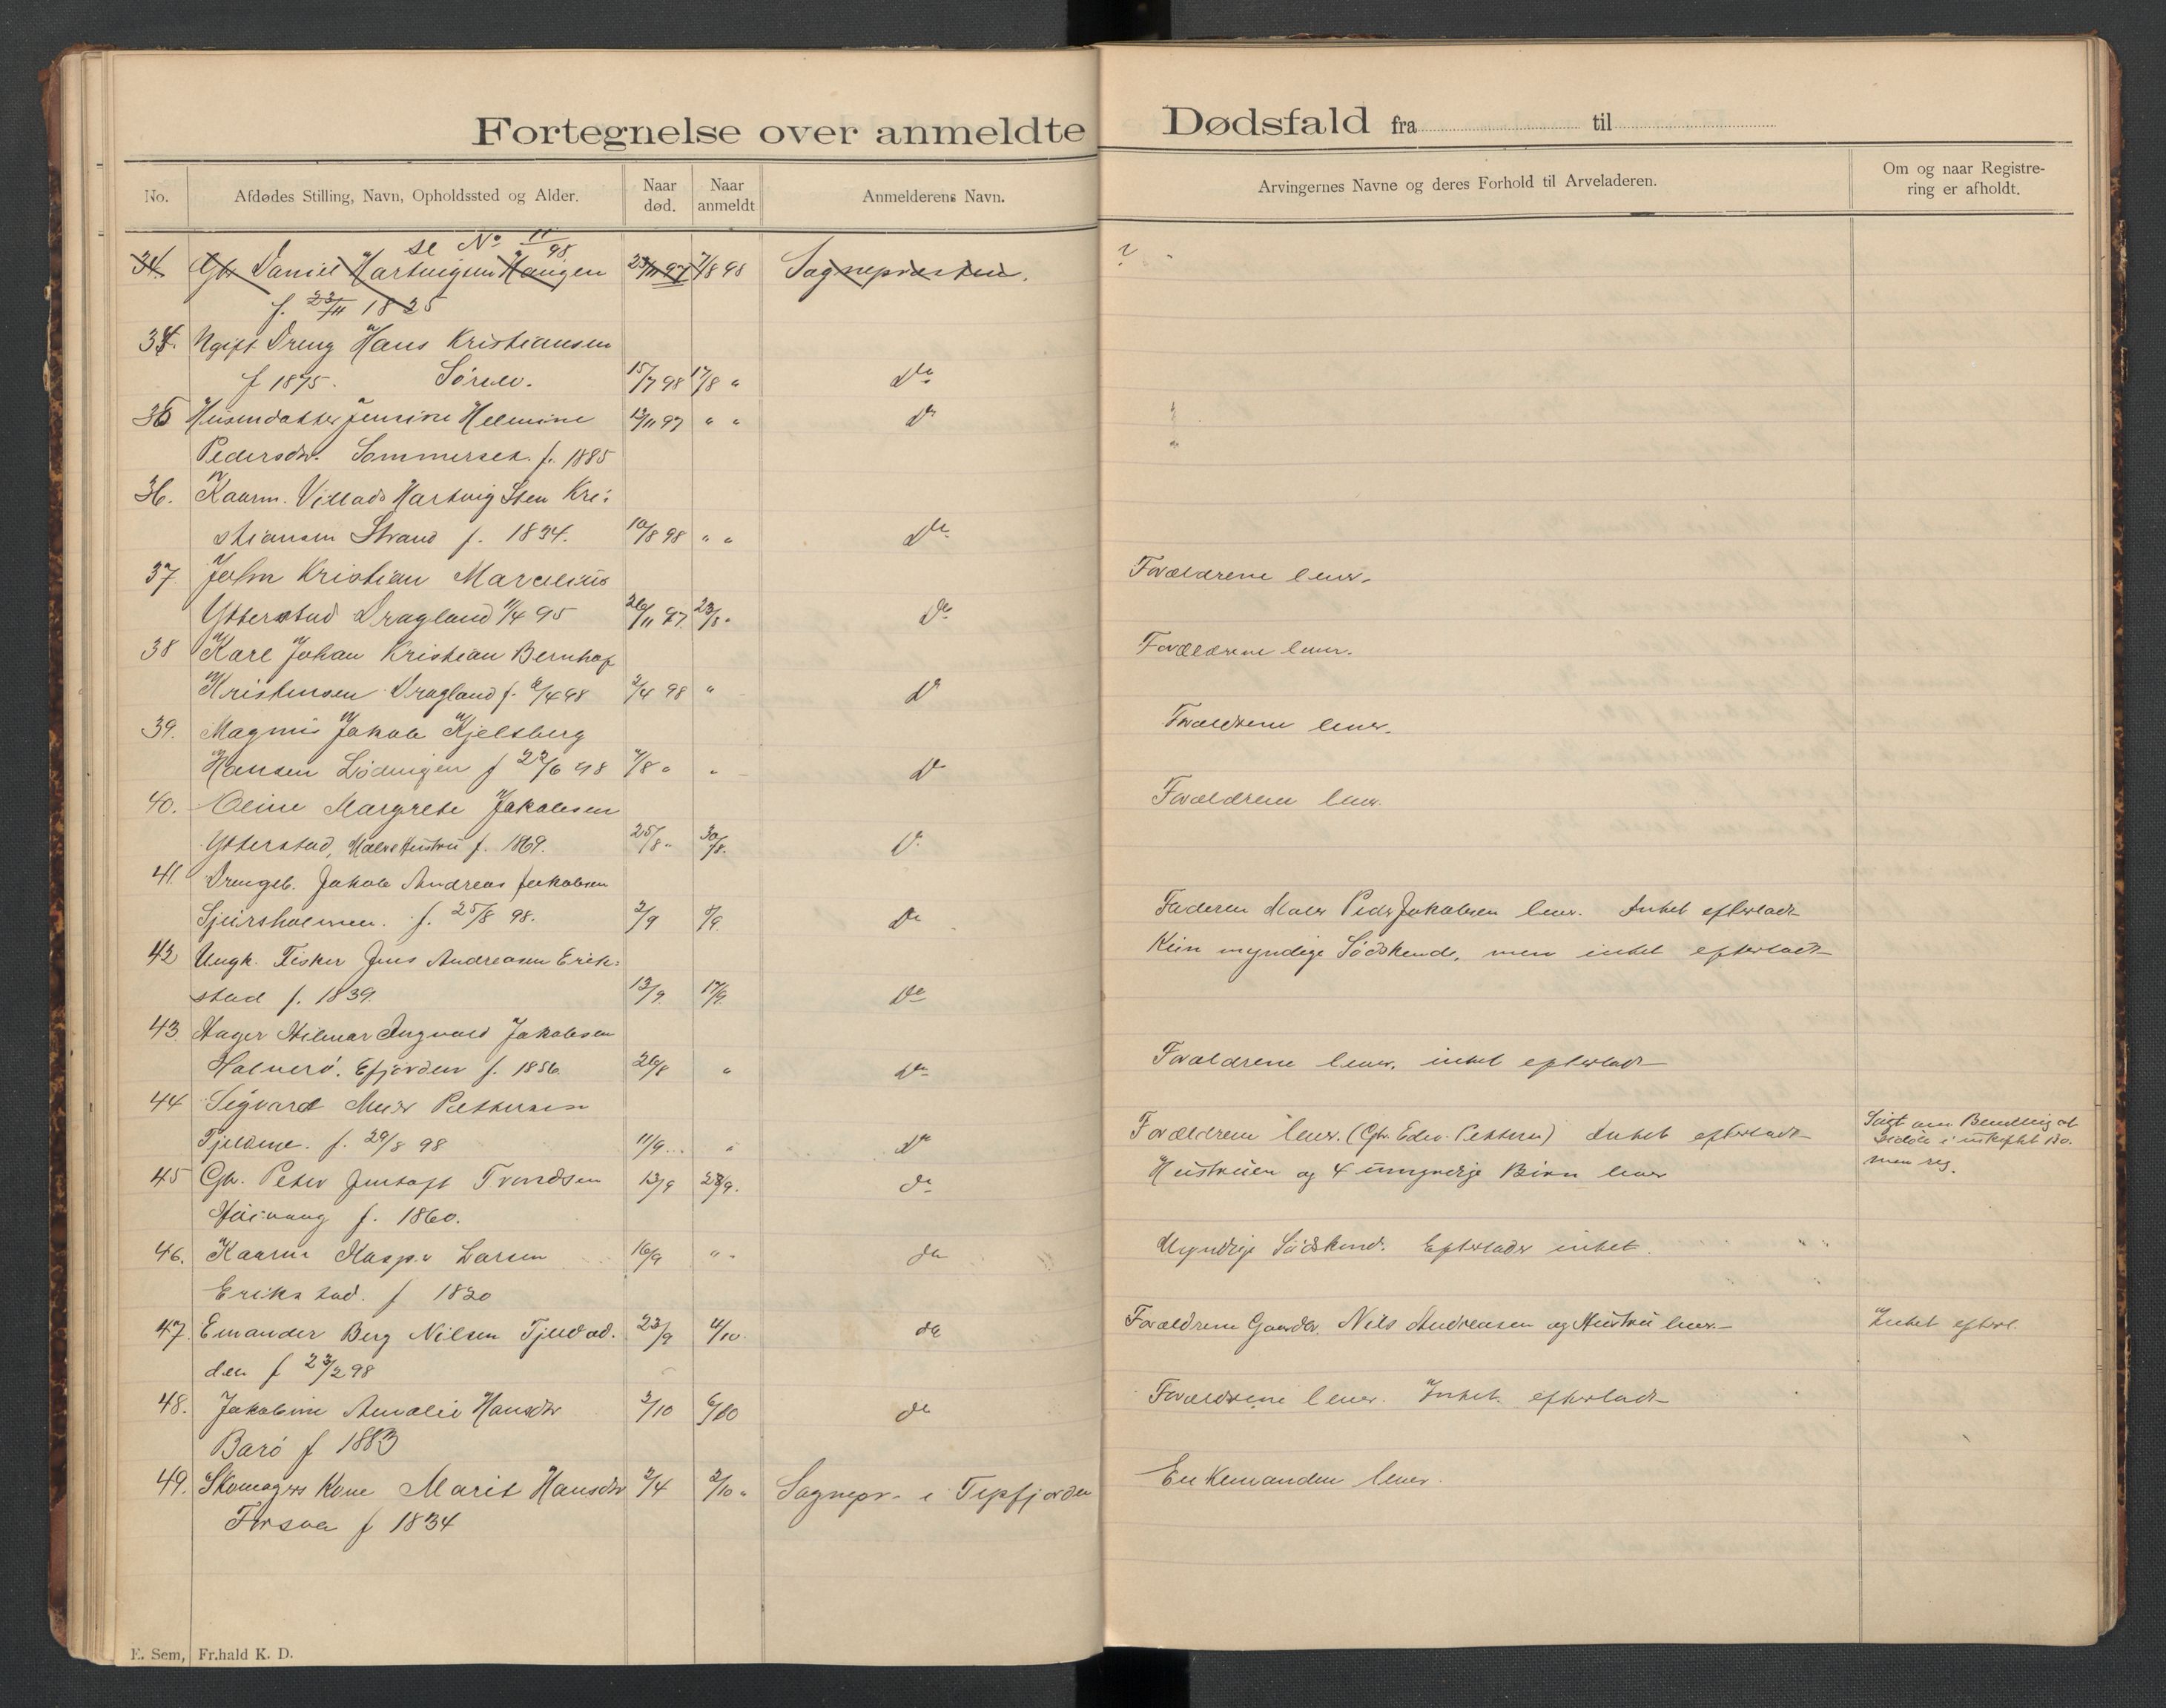 Fortegnelse over anmeldte Dødsfald fra til
No.
Afdødes Stilling, Navn, Opholdssted og Alder.
Naar død.
Naar anmeldt
Anmelderens Navn.
Arvingernes Navne og deres Forhold til Arveladeren.
Om og naar Registrering er afholdt.
se No 11/98
34. Gbr Daniel Hartvigsen Haugen 23/11 97 7/8 98 Sognepræsten. ?
f. 23/11 1825
34. Ugift Dreng Hans Kristiansen
f 1875. 15/7 98 17/8 " Do
35 Husmdatter Jensine Helmine 12/11 97 " " Do
Pedersdr. Sommerset f. 1885
36. Kaarm. Villads Hartvig Sten Kri-
stiansen Strand f. 1834. 10/8 98 " " Do
37. John Kristian Marelius Forældrene lever.
Ytterstad Dragland 11/4 95 26/11 97. 23/8 " Do
38 Karl Johan Kristian Bernhof Forældrene lever.
Kristensen Dragland f. /4 98 2/4 98 " Do
39. Magnus Jakob Kjelsberg Forældrene lever.
Hansen Lødingen f 22/6 98 /8 " " Do
40. Oline Margrete Jakobsen Forældrene lever.
Ytterstad, Hustru f. 1869. 25/8 " 30/8. D.
41. Drengeb. Jakob Andreas Jakobsen
Sjursholmen. f. 25/8 98. 2/9 8/9. Do Faderen Peder Jakobsen lever. Intet efterladt
42 Ungk. Fisker Jens Andreasen Erik- Kun myndige Södskende, men intet efterladt
stad f. 1839. 13/9. 17/9. Do
43. Hager Hilmar Ingvald Jakobsen
Halverö. Efjorden f. 1856. 26/8 " Do Forældrene lever. intet efterladt
44 Sigvard Meier Pettersen
Tjeldnes. f. 29/8 98 11/9 " Do Forældrene lever. (Gbr. Edv. Pettersen) Intet efterladt
45 Gbr. Peter Justoft Trondsen 13/9 23/9. Do Hustruen og 4 umyndige Børn lever
f. 1860. men reg.
46. Kaarm Kasper Larsen 16/9 " " do Myndige Södskend. Efterlader intet.
Erikstad. f 1820
47. Emander Berg Nilsen Tjeldod- 23/9 4/10 do Forældrene Gaardbr. Nils Andreasen og Hustru lever. Intet efterl.
den f 23/2 98
48. Jakobine Amalie Hansdr 2/10 6/10 do Forældrene lever. Intet efterladt
Barö f 1883
49. Skomagers Kone Marit Hansdr 2/4 2/10 " Sognepr. i Tysfjorden Enkemanden lever.
Forsaa f 1834
E. Sem, Fr.hald K. D.